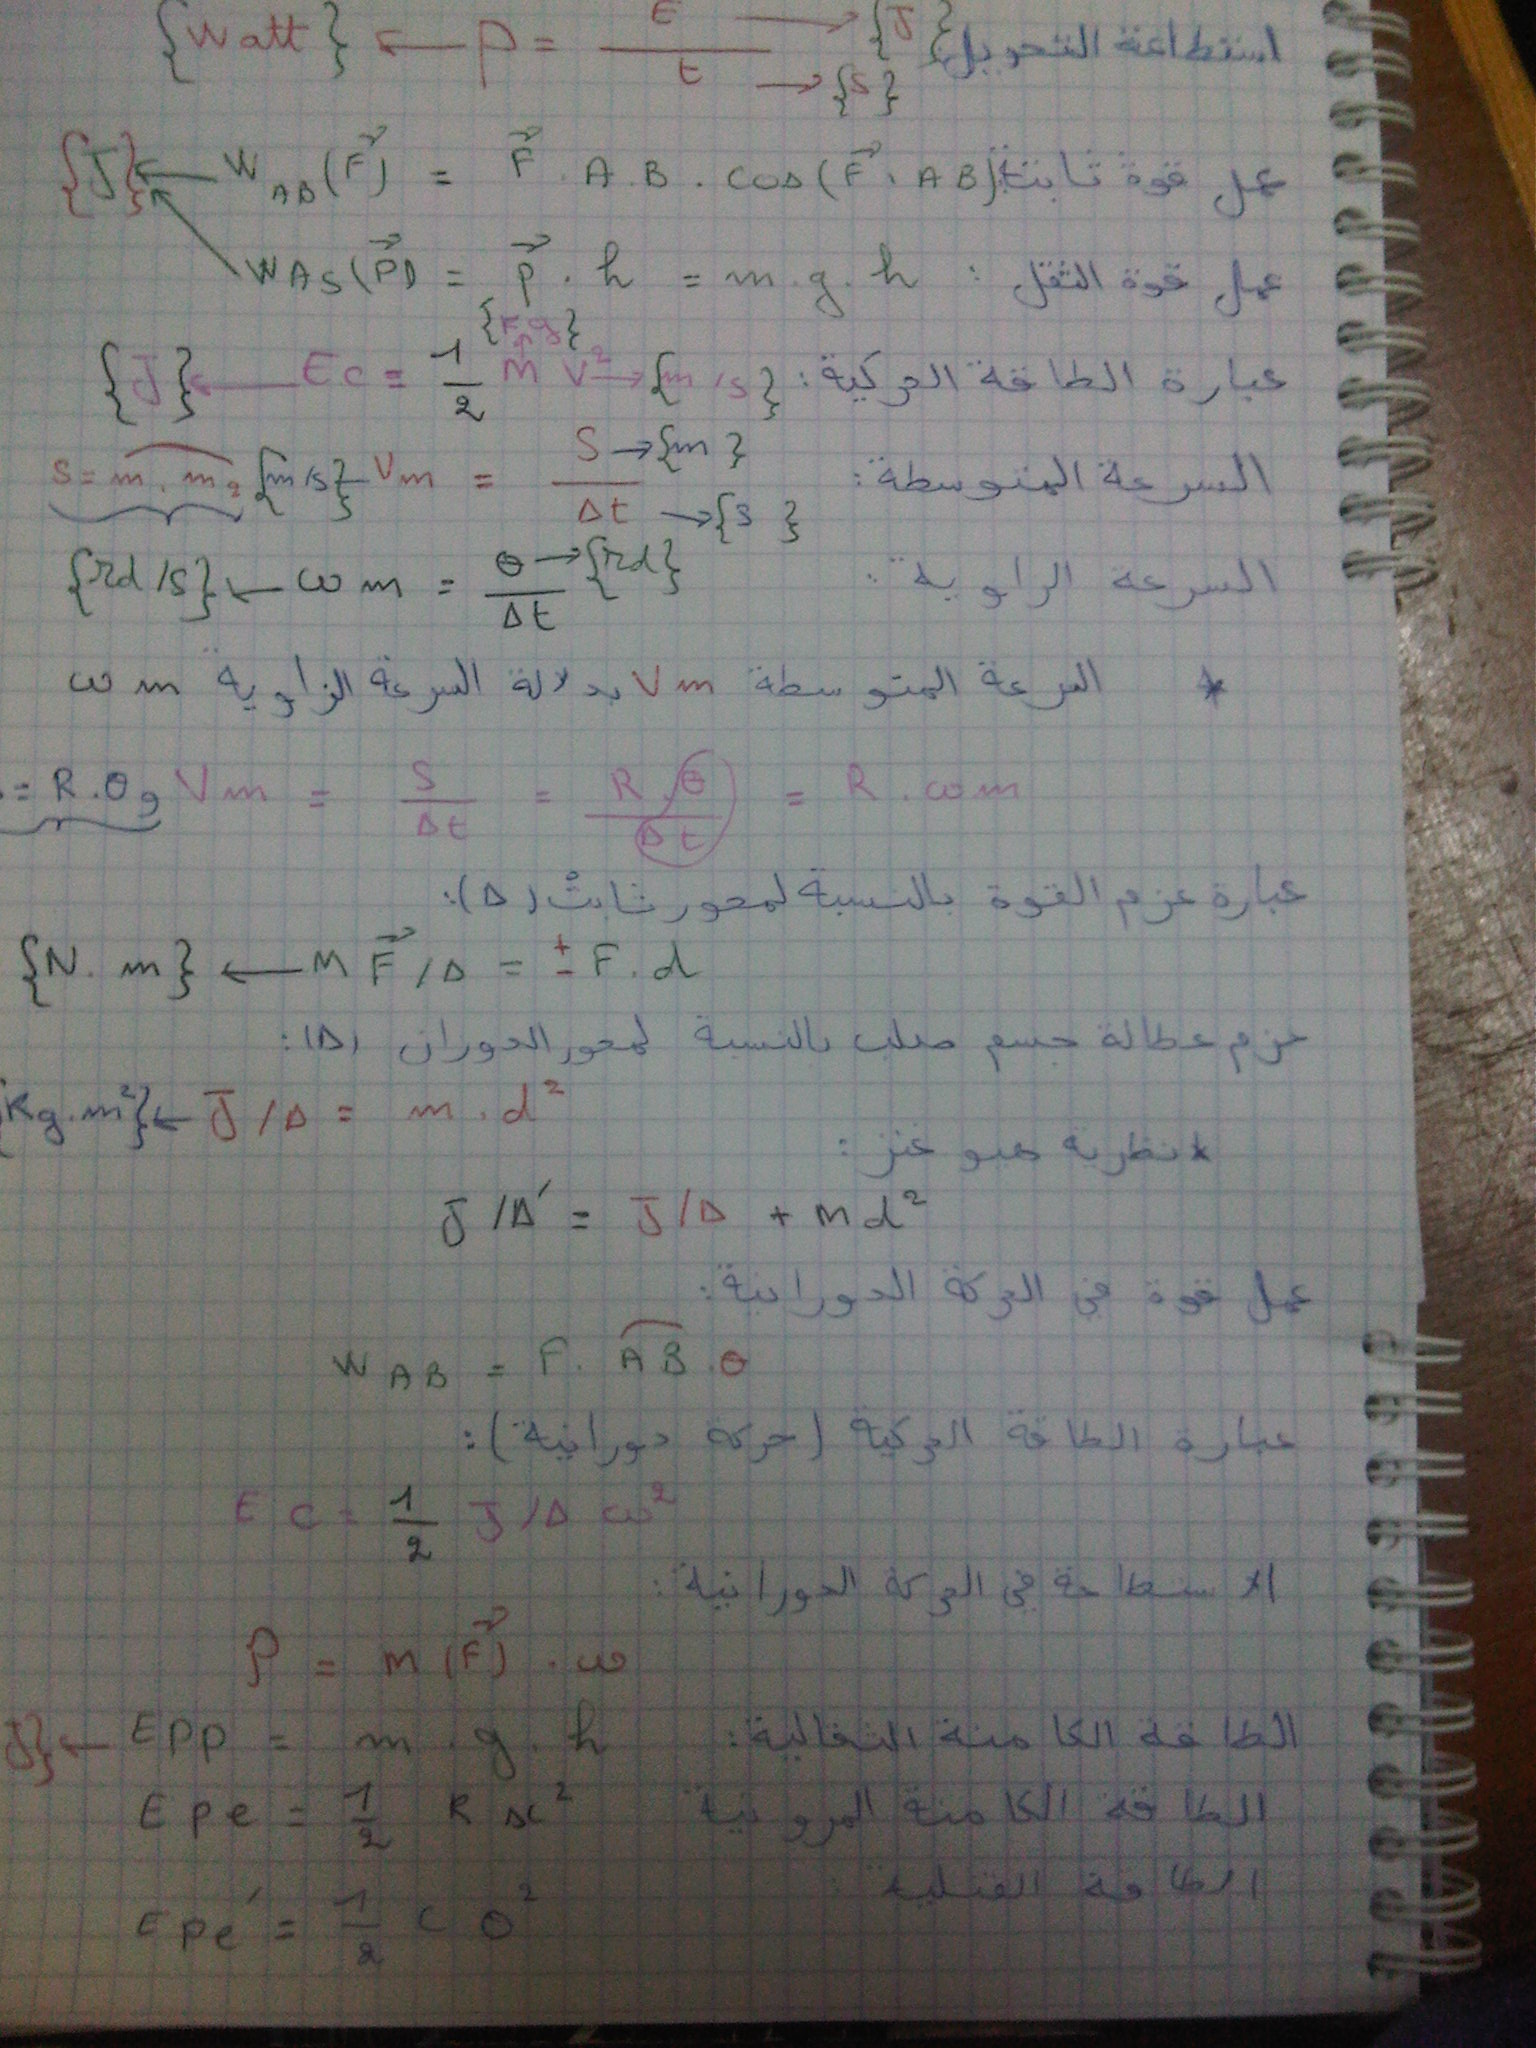 استطاعة التحويل {Watt} ← P = E / t → {J} → {s}
عمل قوة ثابتة: {J} ← W AB (F⃗) = F⃗ . A.B . cos(F⃗ . AB)
عمل قوة الثقل : WAS(P⃗) = P⃗ . h = m.g.h
عبارة الطاقة الحركية: {J} ← Ec = 1/2 m v² → {m/s} {Kg}
السرعة المتوسطة: S = m₁m₂ {m/s} Vm = S → {m} / Δt → {s}
السرعة الزاوية : {rd/s} ← ωm = θ → {rd} / Δt
* السرعة المتوسطة Vm بدلالة السرعة الزاوية ωm
= R.θ و Vm = S / Δt = R.θ / Δt = R.ωm
عبارة عزم القوة بالنسبة لمحور ثابت (Δ):
{N.m} ← M F⃗/Δ = ± F.d
عزم عطالة جسم صلب بالنسبة لمحور الدوران (Δ):
{Kg.m²} ← J/Δ = m.d²
* نظرية هيوغنز :
J/Δ' = J/Δ + md²
عمل قوة في الحركة الدورانية:
W AB = F. AB .θ
عبارة الطاقة الحركية (حركة دورانية):
Ec = 1/2 J/Δ ω²
الاستطاعة في الحركة الدورانية:
P = m(F⃗) . ω
الطاقة الكامنة الثقالية: J} ← Epp = m.g.h
الطاقة الكامنة المرونية Epe = 1/2 K x²
الطاقة الفتلية Epe' = 1/2 C θ²